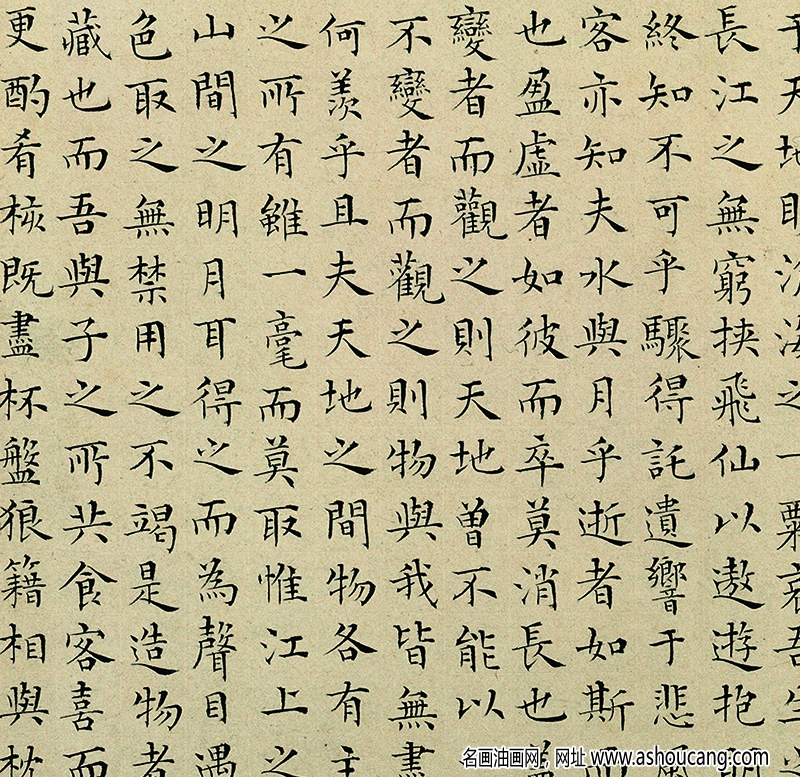 于天地眇滄海之一粟哀吾生
長江之無窮挾飛仙以遨遊抱明
終知不可乎驟得託遺響于悲風
客亦知夫水與月乎逝者如斯而
也盈虛者如彼而卒莫消長也蓋
變者而觀之則天地曾不能以
不變者而觀之則物與我皆無盡
何羨乎且夫天地之間物各有主
之所有雖一毫而莫取惟江上之
山間之明月耳得之而為聲目遇
色取之無禁用之不竭是造物者
藏也而吾與子之所共食客喜而
更酌肴核既盡杯盤狼籍相與枕
名画油画网，网址 www.ashoucang.com